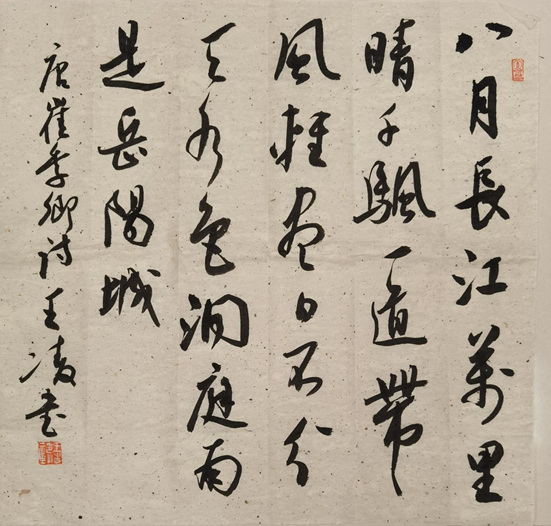 八月長江萬里
晴千颿一道帶
風輕盡日不分
天水色洞庭南
是岳陽城
唐崔季卿詩王凌書